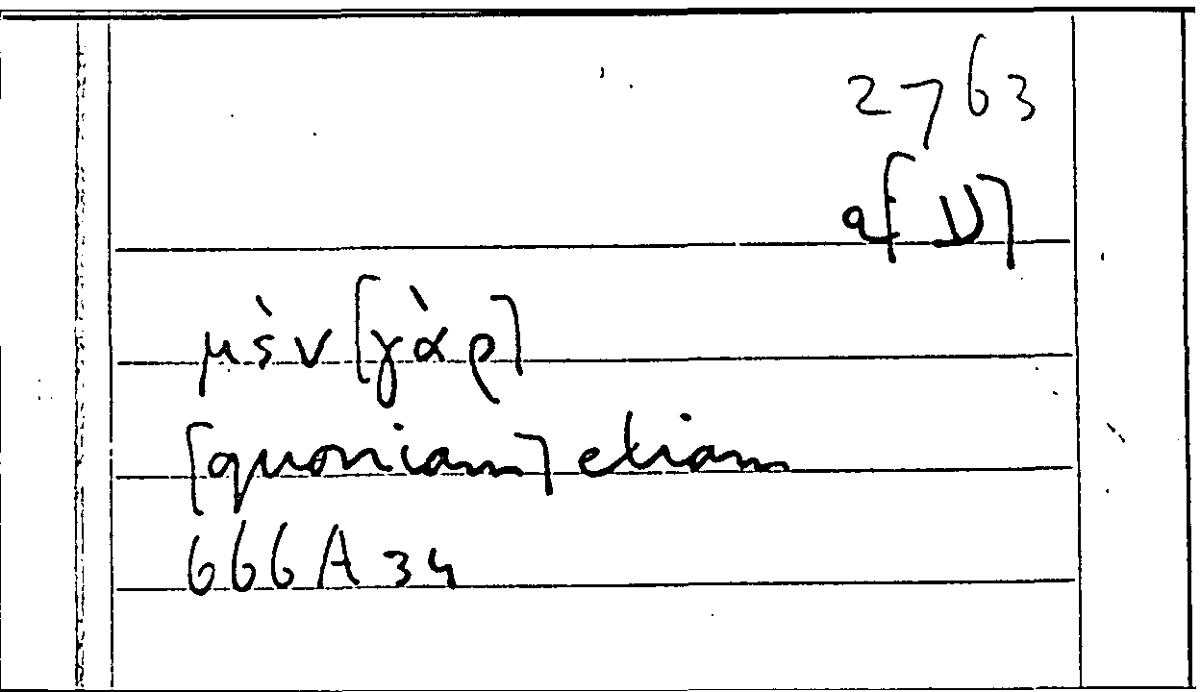 2763
a[D]
μὲν [γὰρ]
[quoniam] etiam
666A34